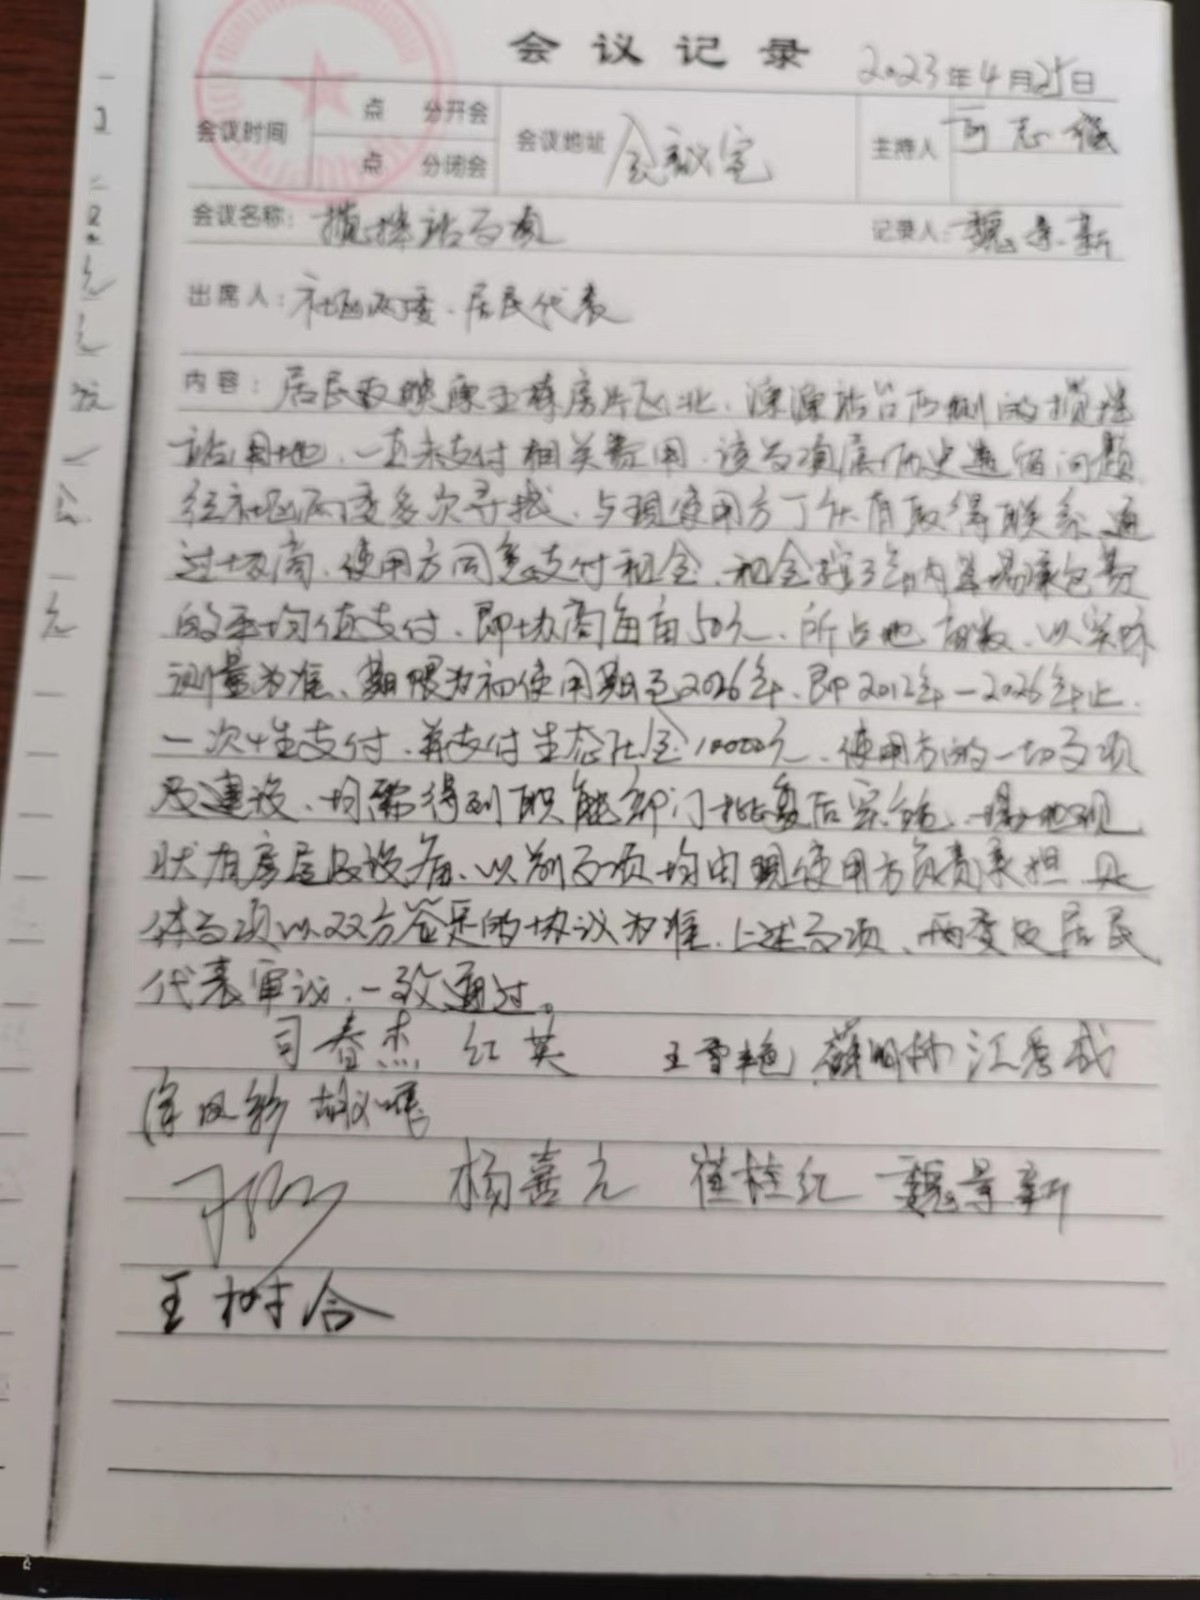 会议记录
2023年4月25日
会议时间 点 分开会 点 分闭会 会议地址 会议室 主持人 志
会议名称: 搅拌站事项 记录人: 魏景新
出席人: 社区两委、居民代表
内容: 居民反映原王 房片区北、深源站台西侧的搅拌
站用地,一直未支付相关费用,该事项属历史遗留问题
经社区两委多次寻找,与现使用方丁 取得联系,通
过协商,使用方同意支付租金,租金按3年内 承包费
的平均值支付,即协商每亩50元,所占地亩数,以实际
测量为准,期限为初使用期至2026年,即2012年-2026年止,
一次性支付,并支付生态社金10000元,使用方的一切事项
及建设,均需得到职能部门批复后实施,场地现
状有房屋及设备,以前事项均由现使用方负责承担,具
体事项以双方签定的协议为准,上述事项,两委及居民
代表审议,一致通过。
司春杰 红英 王雪艳 薛明林 江秀成
徐凤彩 胡
杨喜元 崔桂红 魏景新
王树合